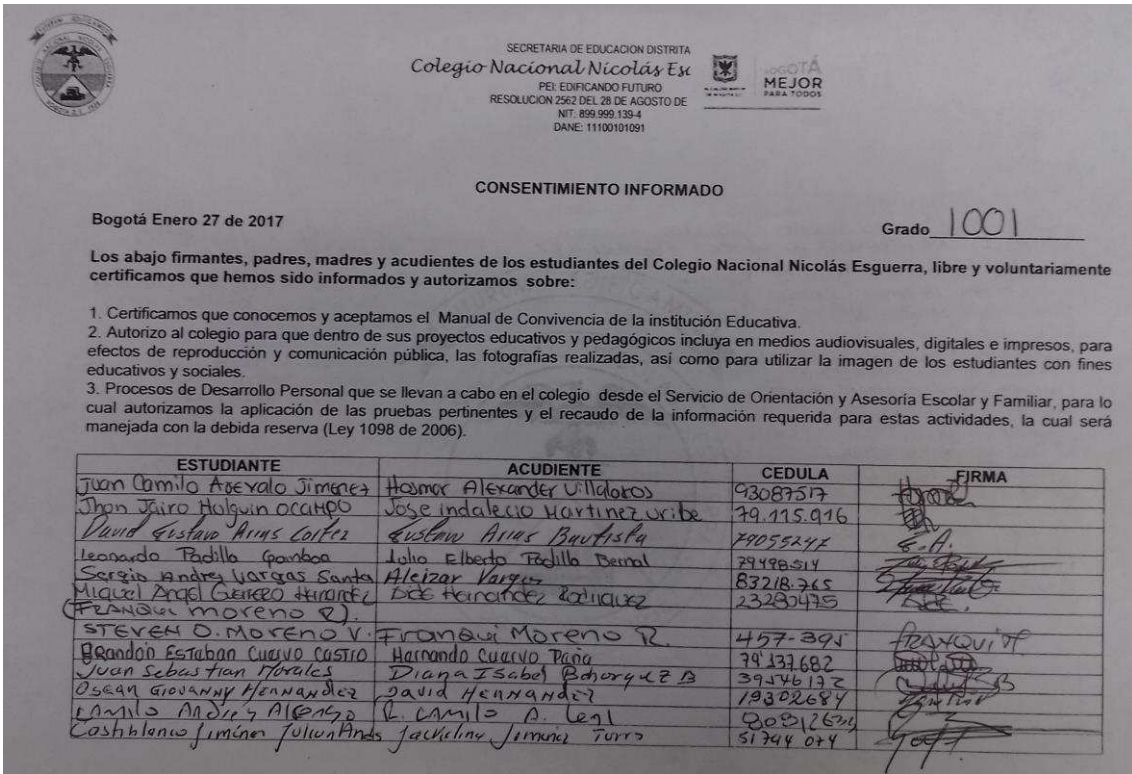 SECRETARIA DE EDUCACION DISTRITA
Colegio Nacional Nicolás Es
PEI: EDIFICANDO FUTURO
RESOLUCION 2562 DEL 28 DE AGOSTO DE
NIT: 899.999.139-4
DANE: 11100101091
BOGOTÁ
MEJOR
PARA TODOS
CONSENTIMIENTO INFORMADO
Bogotá Enero 27 de 2017
Grado 1001
Los abajo firmantes, padres, madres y acudientes de los estudiantes del Colegio Nacional Nicolás Esguerra, libre y voluntariamente
certificamos que hemos sido informados y autorizamos sobre:
1. Certificamos que conocemos y aceptamos el Manual de Convivencia de la institución Educativa.
2. Autorizo al colegio para que dentro de sus proyectos educativos y pedagógicos incluya en medios audiovisuales, digitales e impresos, para
efectos de reproducción y comunicación pública, las fotografías realizadas, así como para utilizar la imagen de los estudiantes con fines
educativos y sociales.
3. Procesos de Desarrollo Personal que se llevan a cabo en el colegio desde el Servicio de Orientación y Asesoría Escolar y Familiar, para lo
cual autorizamos la aplicación de las pruebas pertinentes y el recaudo de la información requerida para estas actividades, la cual será
manejada con la debida reserva (Ley 1098 de 2006).
ESTUDIANTE ACUDIENTE CEDULA FIRMA
Juan Camilo Acevalo Jimenez Hosmar Alexander Villalobos 93087517
Jhon Jairo Holguin Ocampo Jose indalecio Martinez uribe 79.115.916
David Gustavo Arias Cortez Gustavo Arias Bautista 79055247 G.A.
Leonardo Padilla Gamboa Julio Elberto Padilla Bernal 79498514
Sergio Andrey Vargas Santa Aleizar Vargas 83218.765
Miguel Angel Guerrero Hernandez Hernandez Rodriguez 23280475
(Franqui moreno R).
STEVEN O. MORENO V. Franqui Moreno R. 457-395 FRANQUI M
Brandon Estaban Cuervo Castro Hernando Cuervo Peña 79137682
Juan Sebastian Morales Diana Isabel Bohorquez B 39546172
Oscar Giovanny Hernandez David Hernandez 19302684
Camilo Andres Alfonso R. Camilo A.
Castiblanco Jiménez Julian Andres Jackeline Jimenez 51744 074